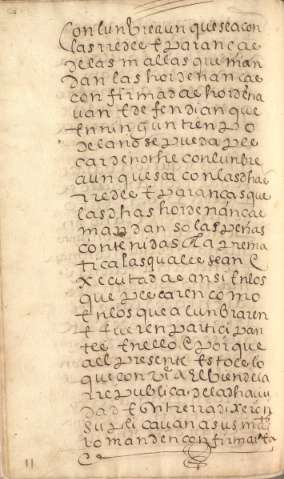 con lunbre aun que sea con
las rredes E paranças
de las mallas que man
dan las hordenanças
confirmadas hordena
van E defendian que
En ningun tienpo
del año se pueda pes
car de noche con lunbre
aun que sea con las dhas
rredes E paranças que
las dhas hordenanças
mandan so las penas
contenidas En la prema
tica las quales sean E
xecutadas ansi En los
que pescaren como
En los que alunbraren
E fueren partiçipan
tes En ello E por que
al presente Esto es lo
que conv̄ia Al bien de la
rrepublica de la dha çiu
dad E su tierra dixeron
suplicavan a su mag̱
lo manden confirmar